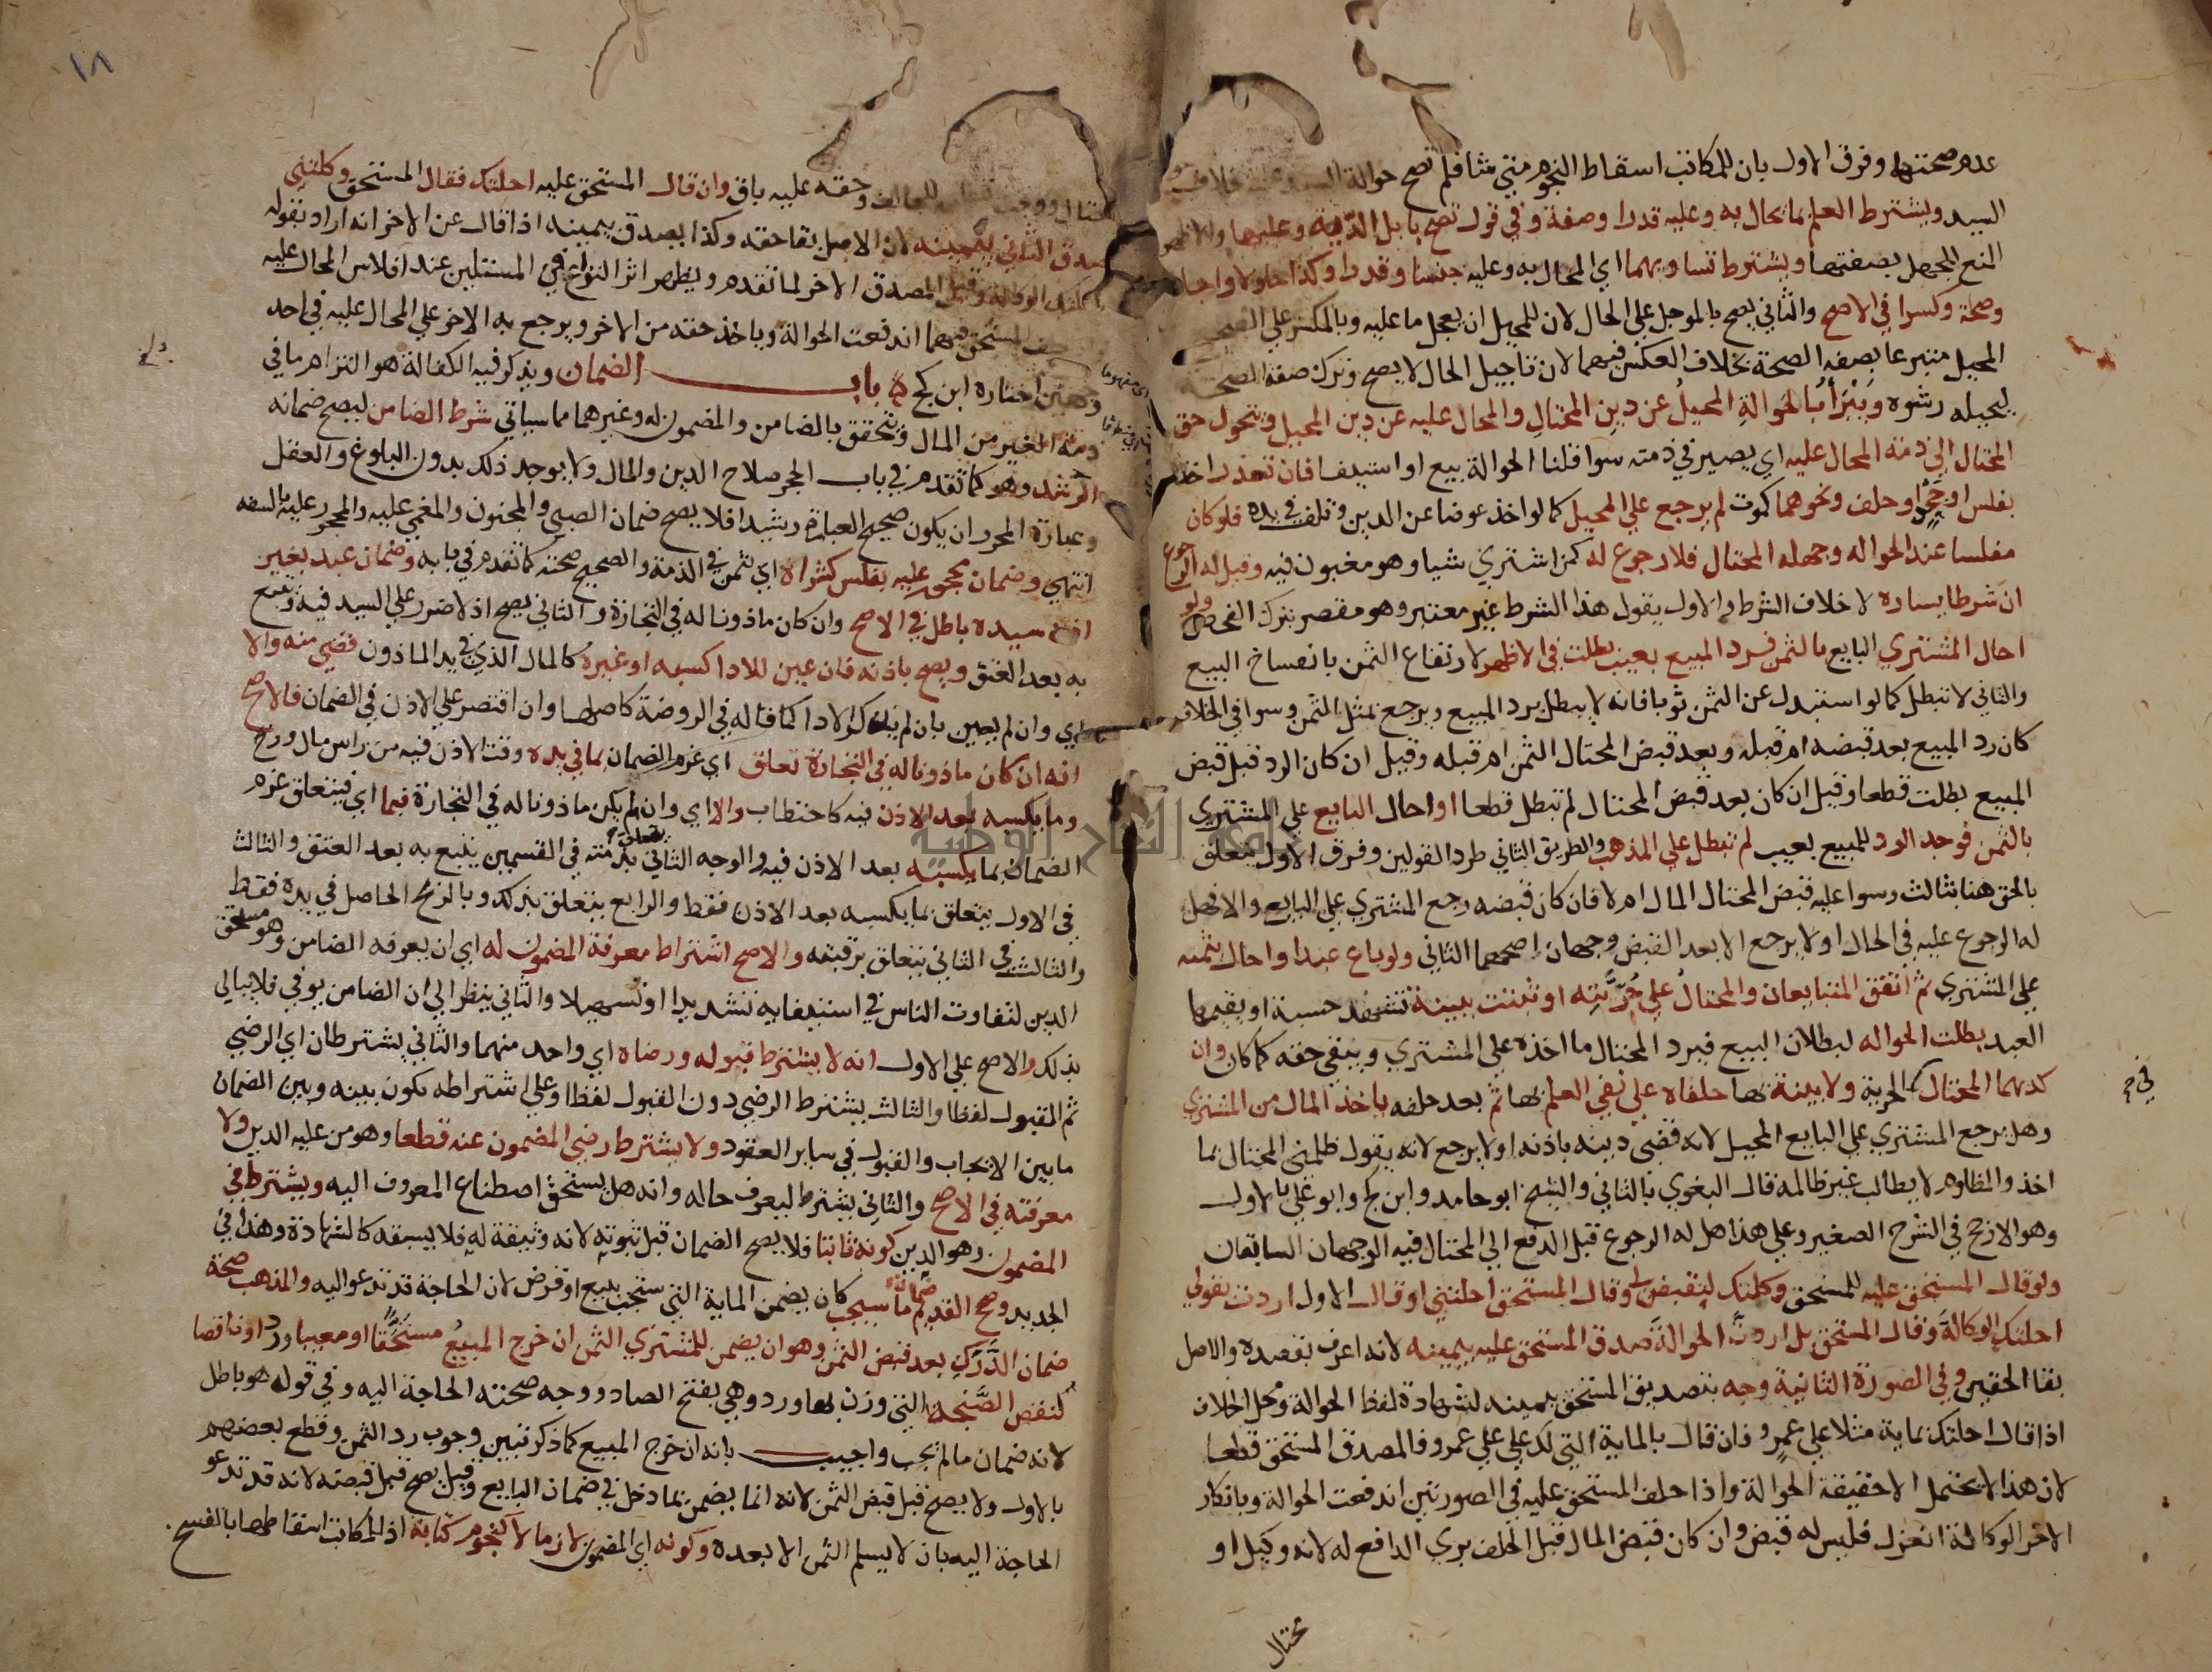 عدم صحتها وفرق الاول بان للمكاتب اسقاط النجوم متي شا فلم تصح حوالة السيد
السيد ويشترط العلم بما يحال به وعليه قدرا وصفة وفي قول تصح بابل الدية وعليها والاظهر
المنع للجهل بصفتها ويشترط تساويهما اي المحال به وعليه جنسا وقدرا وكذا حلولا واجلا
وصحة وكسرا في الاصح والثاني يصح بالموجل علي الحال لان للمحيل ان يعجل ما عليه وبالمكسر علي الصحيح
المحيل متبرعا بصفة الصحة بخلاف العكس فيهما لان تاجيل الحال لا يصح وترك صفة الصحة
ليحيله رشوه ويَبْرَأُ بالحوالةِ المحيلُ عن دين المحتال والمحال عليه عن دين المحيل ويتحول حق
المحتال الي ذمة المحال عليه اي يصير في ذمته سوا قلنا الحوالة بيع او استيفا فان تعذر اخذه
بفلس او جَحْدٍ وحلف ونحوهما كموت لم يرجع علي المحيل كما لو اخذ عوضا عن الدين وتلف في يده فلو كان
مفلسا عند الحواله وجهله المحتال فلا رجوع له كمن اشتري شيا وهو مغبون فيه وقيل له الرجوع
ان شرط يساره لا خلاف الشرط والاول يقول هذا الشرط غير معتبر وهو مقصر بترك الفحص ولو
احال المشتري البايع بالثمن فرد المبيع بعيب بطلت في الاظهر لارتفاع الثمن بانفساخ البيع
والثاني لا تبطل كما لو استبدل عن الثمن ثوبا فانه لا يبطل برد المبيع ويرجع بمثل الثمن وسوا في الخلاف
كان رد المبيع بعد قبضه ام قبله وبعد قبض المحتال الثمن ام قبله وقيل ان كان الرد قبل قبض
المبيع بطلت قطعا وقيل ان كان بعد قبض المحتال لم تبطل قطعا او احال البايع علي المشتري
بالثمن فوجد الرد للمبيع بعيب لم تبطل علي المذهب والطريق الثاني طرد القولين وفرق الاول بتعلق
بالحق هنا بثالث وسوا عليه قبض المحتال المال ام لا فان كان قبضه رجع المشتري علي البايع والا فهل
له الرجوع عليه في الحال او لا يرجع الا بعد القبض وجهان اصحهما الثاني ولو باع عبدا واحال بثمنه
علي المشتري ثم اتفق المتبايعان والمحتالُ علي حُرِّيَّتِه او ثبتت ببينة تشهد حسبة او يقيمها
العبد بطلت الحواله لبطلان البيع فيرد المحتال ما اخذه علي المشتري ويبقي حقه كما كان وان
كذبهما المحتال في الحرية ولا بينة بها حلفاه علي نفي العلم بها ثم بعد حلفه ياخذ المال من المشتري
وهل يرجع المشتري علي البايع المحيل لانه قضي دينه باذنه او لا يرجع لانه يقول ظلمني المحتال بما
اخذ والمظلوم لا يطالب غير ظالمه قال البغوي بالثاني والشيخ ابو حامد وابن كج وابو علي بالاول
وهو الارجح في الشرح الصغير وعلي هذا هل له الرجوع قبل الدفع الي المحتال فيه الوجهان السابقان
ولو قال المستحق عليه للمستحق وكلتك لتقبض لي وقال المستحق احلتني او قال الاول اردت بقولي
احلتك الوكالة وقال المستحق بل اردتَ الحوالة صدق المستحق عليه بيمينه لانه اعرف بقصده والاصل
بقا الحقين وفي الصورة الثانية وجه بتصديق المستحق بيمينه لشهادة لفظ الحوالة ومحل الخلاف
اذا قال احلتك بماية مثلا علي عمرو فان قال بالماية التي لك علي علي عمرو فالمصدق المستحق قطعا
لان هذا لا يحتمل الا حقيقة الحوالة واذا حلف المستحق عليه في الصورتين اندفعت الحوالة وبانكار
الاخر الوكالة انعزل فليس له قبض وان كان قبض المال قبل الحلف بري الدافع له لانه وكيل او
محتال
١٨
محتال ووجب وحقه عليه باق وان قال المستحق عليه احلتك فقال المستحق وكلتني
صدق الثاني بيمينه لان الاصل بقا حقه وكذا يصدق بيمينه اذا قال عن الاخر انه اراد بقوله
احلتك الوكالة وقيل المصدق الاخر لما تقدم ويظهر اثر النزاع في المسئلتين عند افلاس المحال عليه
حلف المستحق فيهما اندفعت الحوالة وياخذ حقه من الاخر ويرجع به الاخر علي المحال عليه في احد
وجهين اختاره ابن كج باب الضمان ويذكر فيه الكفالة هو التزام ما في
ذمة الغير من المال ويتحقق بالضامن والمضمون له وغيرهما مما سياتي شرط الضامن ليصح ضمانه
الرشد وهو كما تقدم في باب الحجر صلاح الدين والمال ولا يوجد ذلك بدون البلوغ والعقل
وعبارة المحرر ان يكون صحيح العبارة رشيدا فلا يصح ضمان الصبي والمجنون والمغمي عليه والمحجور عليه بالسفه
انتهي وضمان محجور عليه بفلس كشراه اي بثمن في الذمة والصحيح صحته كما تقدم في بابه وضمان عبد بغير
اذن سيده باطل في الاصح وان كان ماذونا له في التجارة والثاني يصح اذ لا ضرر علي السيد فيه ويتبع
به بعد العتق ويصح باذنه فان عين للادا كسبه او غيره كالمال الذي في يد الماذون قضي منه والا
اي وان لم يعين بان لم يذكر الادا كما قاله في الروضة كاصلها وان اقتصر علي الاذن في الضمان فالاصح
انه ان كان ماذونا له في التجارة تعلق اي غرم الضمان بما في يده وقت الاذن فيه من راس مال وربح
وما يكسبه بعد الاذن فيه كاحتطاب والا اي وان لم يكن ماذونا له في التجارة فبما اي فيتعلق غرم
الضمان بما يكسبه بعد الاذن فيه والوجه الثاني يتعلق بذمته في القسمين يتبع به بعد العتق والثالث
في الاول يتعلق بما يكسبه بعد الاذن فقط والرابع يتعلق بذلك وبالربح الحاصل في يده فقط
والثالث في الثاني يتعلق برقبته والاصح اشتراط معرفة المضمون له اي ان يعرفه الضامن وهو مستحق
الدين لتفاوت الناس في استيفايه تشديدا او تسهيلا والثاني ينظر الي ان الضامن يوفي فلا يبالي
بذلك والاصح علي الاول انه لا يشترط قبوله ورضاه اي واحد منهما والثاني يشترطان اي الرضي
ثم القبول لفظا والثالث يشترط الرضي دون القبول لفظا وعلي اشتراطه يكون بينه وبين الضمان
ما بين الايجاب والقبول في ساير العقود ولا يشترط رضي المضمون عنه قطعا وهو من عليه الدين ولا
معرفته في الاصح والثاني يشترط ليعرف حاله وانه هل يستحق اصطناع المعروف اليه ويشترط في
المضمون وهو الدين كونه ثابتا فلا يصح الضمان قبل ثبوته لانه وثيقة له فلا يسبقه كالشهادة وهذا في
الجديد وصح القديم ضمان ما سيجب كان يضمن الماية التي ستجب ببيع او قرض لان الحاجة قد تدعوا اليه والمذهب صحة
ضمان الدَّرَكِ بعد قبض الثمن وهو ان يضمن للمشتري الثمن ان خرج المبيعُ مستحَقًّا او معيبا ورد او ناقصا
لنقص الصَّنجة التي وزن بها ورد وهي بفتح الصاد ووجه صحته الحاجة اليه وفي قول هو باطل
لانه ضمان ما لم يجب واجيب بانه ان خرج المبيع كما ذكر تبين وجوب رد الثمن وقطع بعضهم
بالاول ولا يصح قبل قبض الثمن لانه انما يضمن بما دخل في ضمان البايع وقيل يصح قبل قبضه لانه قد تدعو
الحاجة اليه بان لا يسلم الثمن الا بعده وكونه اي المضمون لازما لا كنجوم كتابة اذ للمكاتب اسقاطها بالفسخ